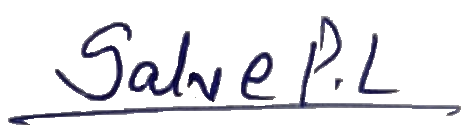 Salve P.L